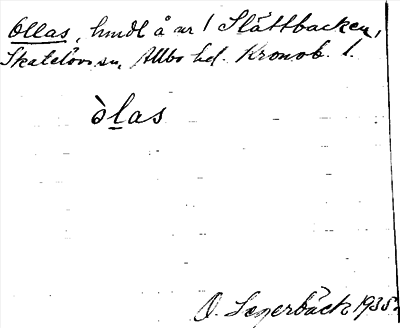 Ollas, hmdl å ur 1 Slättbacken,
Skatelövs sn, Allbo hd. Kronob. l.
òlas
O. Lagerbäck 1935.